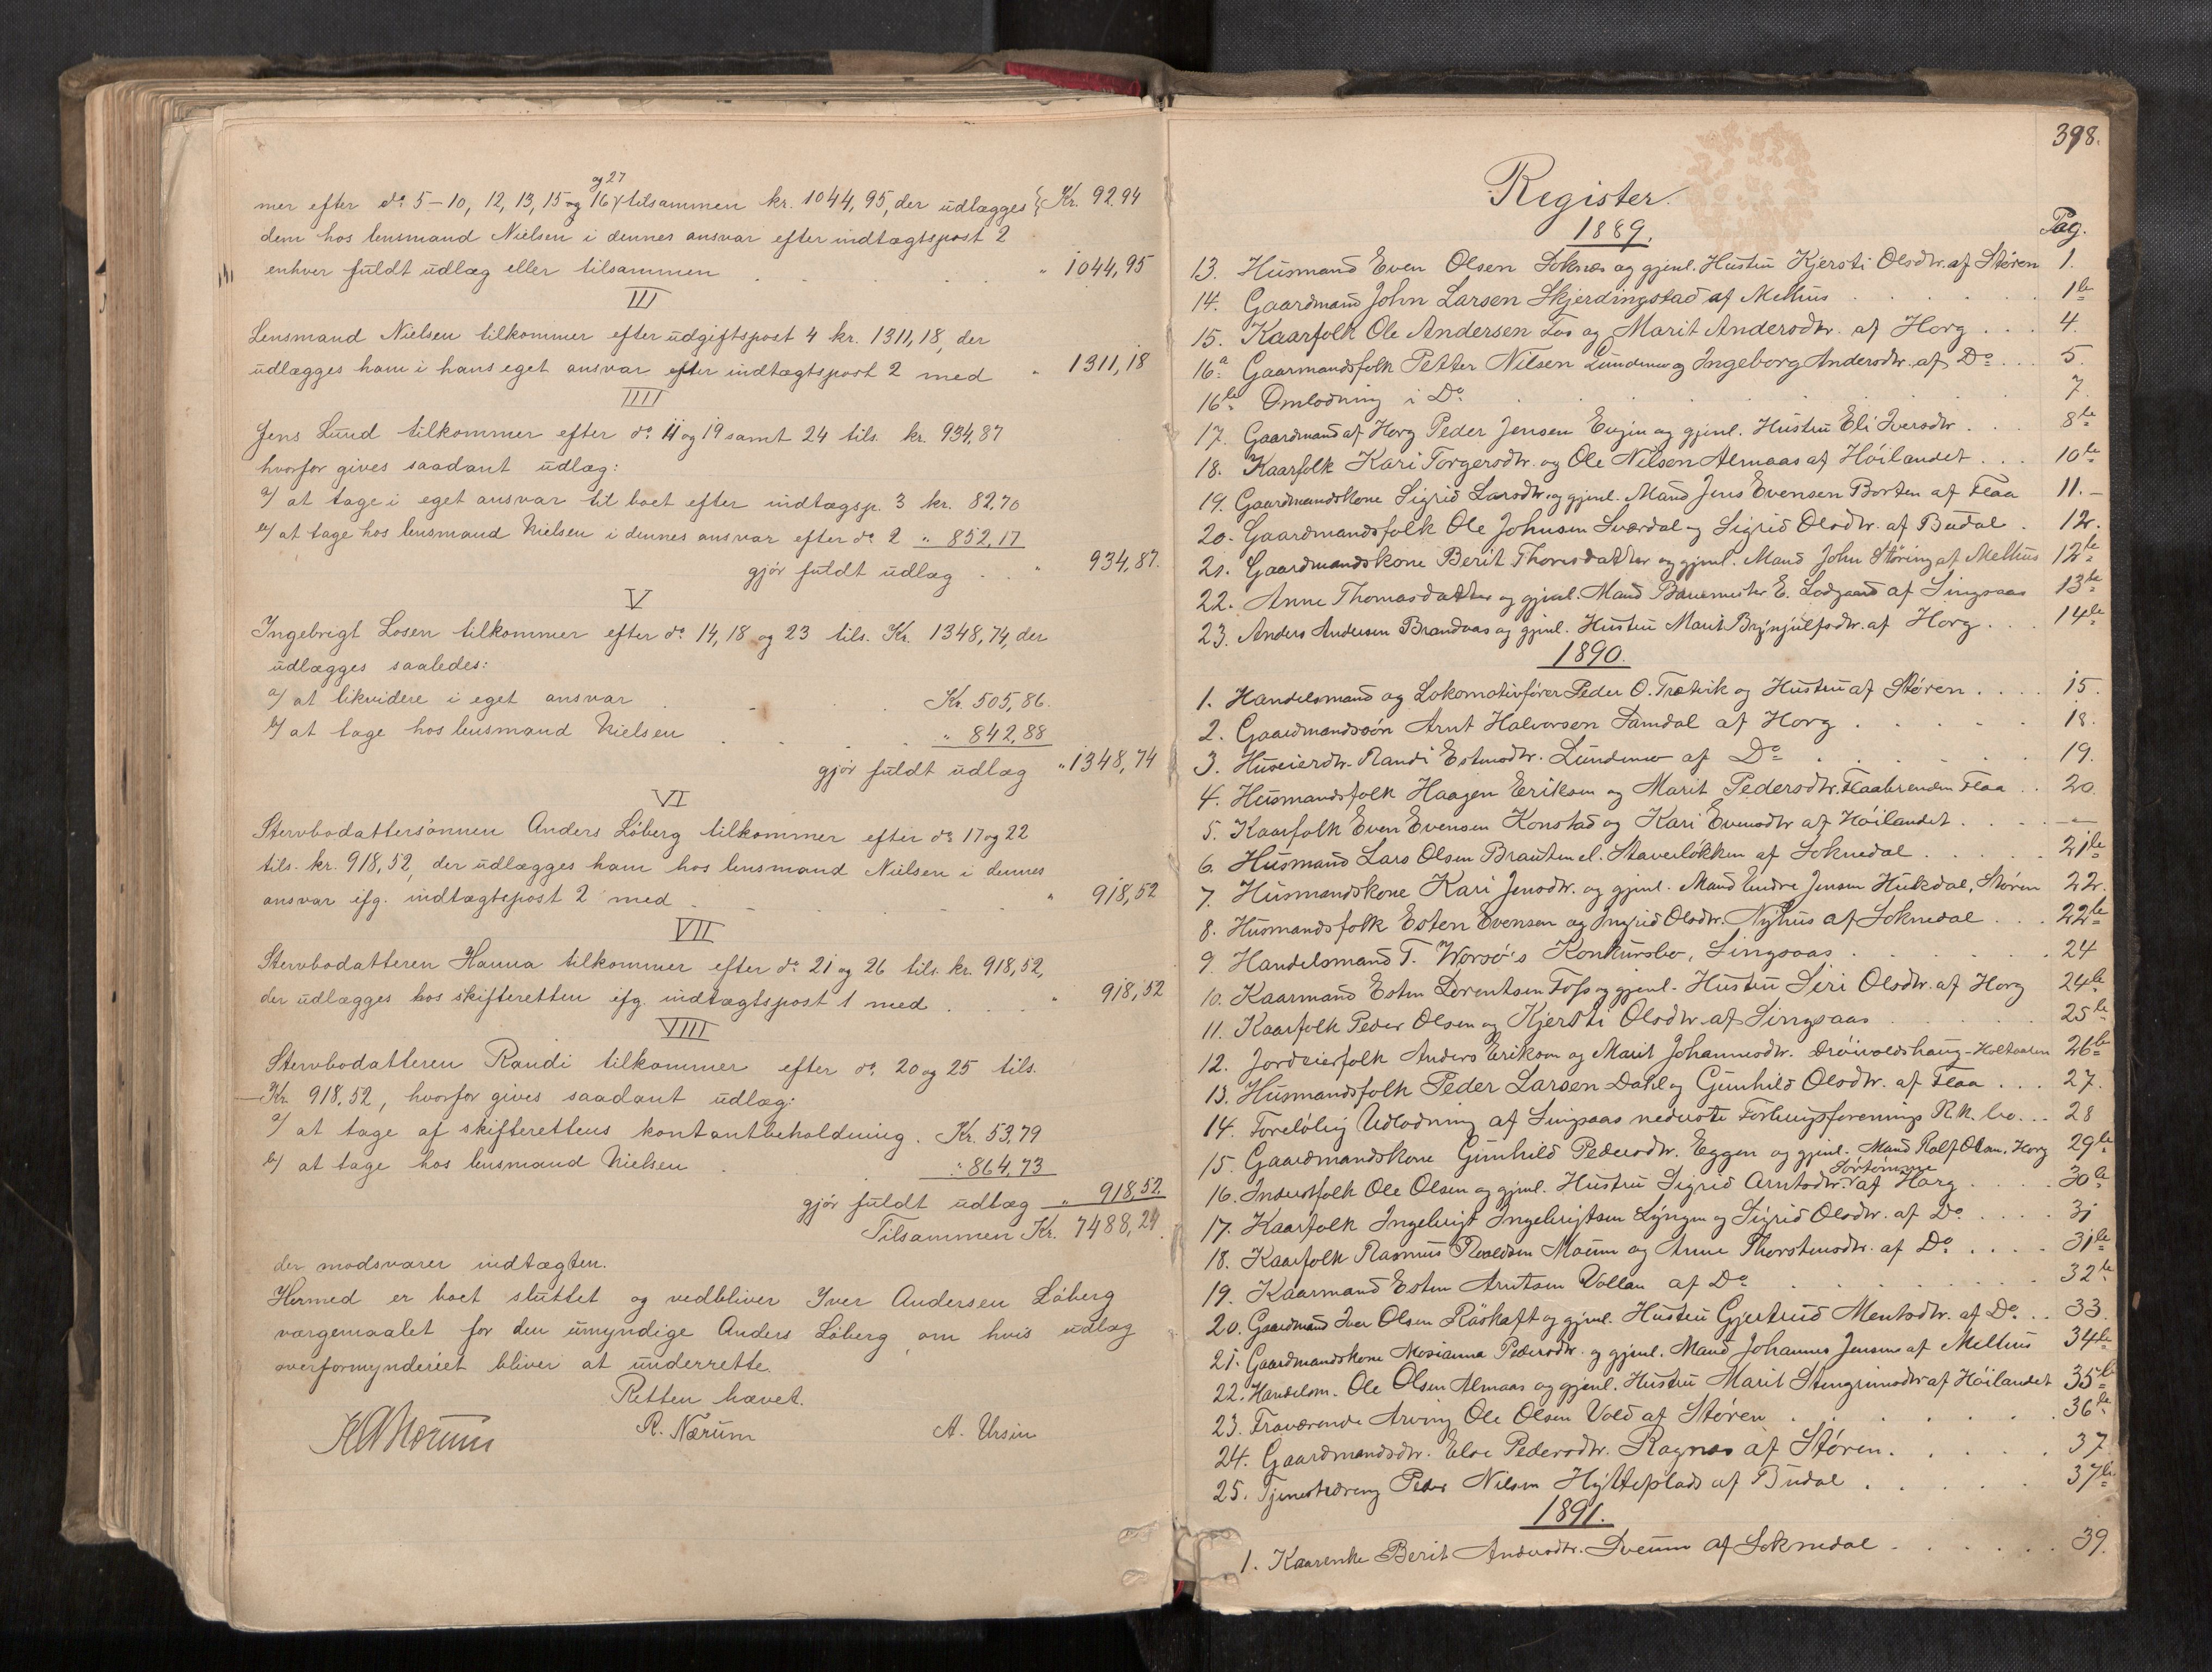 og 27
mer efter do 5–10, 12, 13, 15 og 16 tilsammen kr. 1044,95, der udlægges Kr. 92.94
dem hos lensmand Nielsen i dennes ansvar efter indtægtspost 2
enhver fuldt udlæg eller tilsammen . . . . " 1044,95
III
Lensmand Nielsen tilkommer efter udgiftspost 4 kr. 1311,18, der
udlægges ham i hans eget ansvar efter indtægtspost 2 med " 1311,18
IIII
Jens Lund tilkommer efter do 11 og 19 samt 24 tils. kr. 934,87
hvorfor gives saadant udlæg:
a/ at tage i eget ansvar til boet efter indtægsp. 3 kr. 82,70
b/ at tage hos lensmand Nielsen i dennes ansvar efter do 2 " 852,17
gjør fuldt udlæg . . " 934,87.
V
Ingebrigt Losen tilkommer efter do 14, 18 og 23 tils. Kr. 1348,74, der
udlægges saaledes:
a/ at likvidere i eget ansvar . . . Kr. 505,86.
b/ at tage hos lensmand Nielsen . . . . " 842,88
gjør fuldt udlæg " 1348,74
VI
Stervbodattersønnen Anders Løberg tilkommer efter do 17 og 22
tils. kr. 918,52, der udlægges ham hos lensmand Nielsen i dennes
ansvar ifg. indtægtspost 2 med . . . . " 918,52
VII
Stervbodatteren Hanna tilkommer efter do 21 og 26 tils. kr. 918,52,
der udlægges hos skifteretten ifg. indtægtspost 1 med . . . " 918,52
VIII
Stervbodatteren Randi tilkommer efter do 20 og 25 tils.
Kr. 918,52, hvorfor gives saadant udlæg:
a/ at tage af skifterettens kontantbeholdning. Kr. 53,79
b/ at tage hos lensmand Nielsen . . " 864,73
gjør fuldt udlæg " 918,52
Tilsammen Kr. 7488,24.
der modsvarer indtægten.
Hermed er boet sluttet og vedbliver Iver Andersen Løberg
værgemaalet for den umyndige Anders Løberg, om hvis udlæg
overformynderiet bliver at underrette.
Retten hævet.
R. Nærum A. Ursin
398.
Register.
1889. Pag.
13. Husmand Even Olsen Soknæs og gjenl. Hustru Kjersti Olsdtr. af Støren 1.
14. Gaardmand John Larsen Skjerdingstad af Melhus . . . . 1b
15. Kaarfolk Ole Andersen Fos og Marit Andersdtr. af Horg . . . 4.
16a Gaarmandsfolk Petter Nilsen Lundemo og Ingeborg Andersdtr. af Do . . . 5.
16b Omlodning i Do . . . . 7.
17. Gaardmand af Horg Peder Jensen Evjen og gjenl. Hustru Eli Iversdtr . . . 8b
18. Kaarfolk Kari Torgersdtr. og Ole Nilsen Almaas af Høilandet . . . 10b
19. Gaardmandskone Sigrid Larsdtr. og gjenl. Mand Jens Evensen Borten af Flaa 11.–
20. Gaardmandsfolk Ole Johnsen Sværdal og Sigrid Olsdtr. af Budal . 12.
21. Gaardmandskone Berit Thoresdatter og gjenl. Mand John Støring af Melhus 12b
22. Anne Thomasdatter og gjenl. Mand Banemester E. Lodgaard af Singsaas 13b
23. Anders Andersen Brandvas og gjenl. Hustru Marit Brynjulfsdtr. af Horg . . . 14b
1890.
1. Handelsmand og Lokomotivfører Peder O. Trætvik og Hustru af Støren . . . . 15.
2. Gaardmandssøn Arnt Halvorsen Samdal af Horg . . . . . 18.
3. Huseierdtr. Randi Estensdtr. Lundemo af Do . . . . 19.
4. Husmandsfolk Haagen Eriksen og Marit Pedersdtr. Flaabrenden Flaa . . 20.
5. Kaarfolk Even Evensen Konstad og Kari Evensdtr af Høilandet . . . . –
6. Husmand Lars Olsen Brauten el. Staverløkken af Soknedal . . . . 21b
7. Husmandskone Kari Jensdtr. og gjenl. Mand Endre Jensen Hukdal, Støren 22.
8. Husmandsfolk Esten Evensen og Ingrid Olsdtr. Nyhus af Soknedal . . . 22b
9. Handelsmand T. Worsø's Konkursbo, Singsaas . . . . 24
10. Kaarmand Esten Lorentsen Foss og gjenl. Hustru Siri Olsdtr. af Horg 24b
11. Kaarfolk Peder Olsen og Kjersti Olsdtr af Singsaas . . . . 25b
12. Jordeierfolk Anders Eriksen og Marit Johannesdtr. Drøivoldshaug - Holtaalen 26b
13. Husmandsfolk Peder Larsen Dahl og Gunhild Olsdtr. af Flaa . . . 27.
14. Foreløbig Udlodning af Singsaas nederste Forbrugsforenings K.k. bo . . . 28
15. Gaardmandskone Gunhild Pedersdtr. Eggen og gjenl. Mand Rolf Olsen, Horg 29b
16. Inderstfolk Ole Olsen og gjenl. Hustru Sigrid Arntsdtr. af Horg . . . . 30b
17. Kaarfolk Ingebrigt Ingebrigtsen Lyngen og Sigrid Olsdtr. af Do . . . . 31
18. Kaarfolk Rasmus Roaldsen Moum og Anne Thorstensdtr. af Do . . . . 31b
19. Kaarmand Esten Arntsen Vollan af Do . . . . 32b
20. Gaardmand Iver Olsen Røskaft og gjenl. Hustru Gjertrud Mentsdtr. af Do . . 33.
21. Gaardmandskone Mosianna Pedersdtr. og gjenl. Mand Johannes Jensen af Melhus 34b
22. Handelsm. Ole Olsen Almaas og gjenl. Hustru Marit Stengrimsdtr af Høilandet 35b
23. Fraværende Arving Ole Olsen Vold af Støren . . . . 36b
24. Gaardmandsdtr. Else Pedersdtr. Ragnæs af Støren . . . . 37
25. Tjenestedreng Peder Nilsen Hytteplads af Budal . . . . 37b
1891.
1. Kaarenke Berit Andersdtr. Sveum af Soknedal . . . . 39.